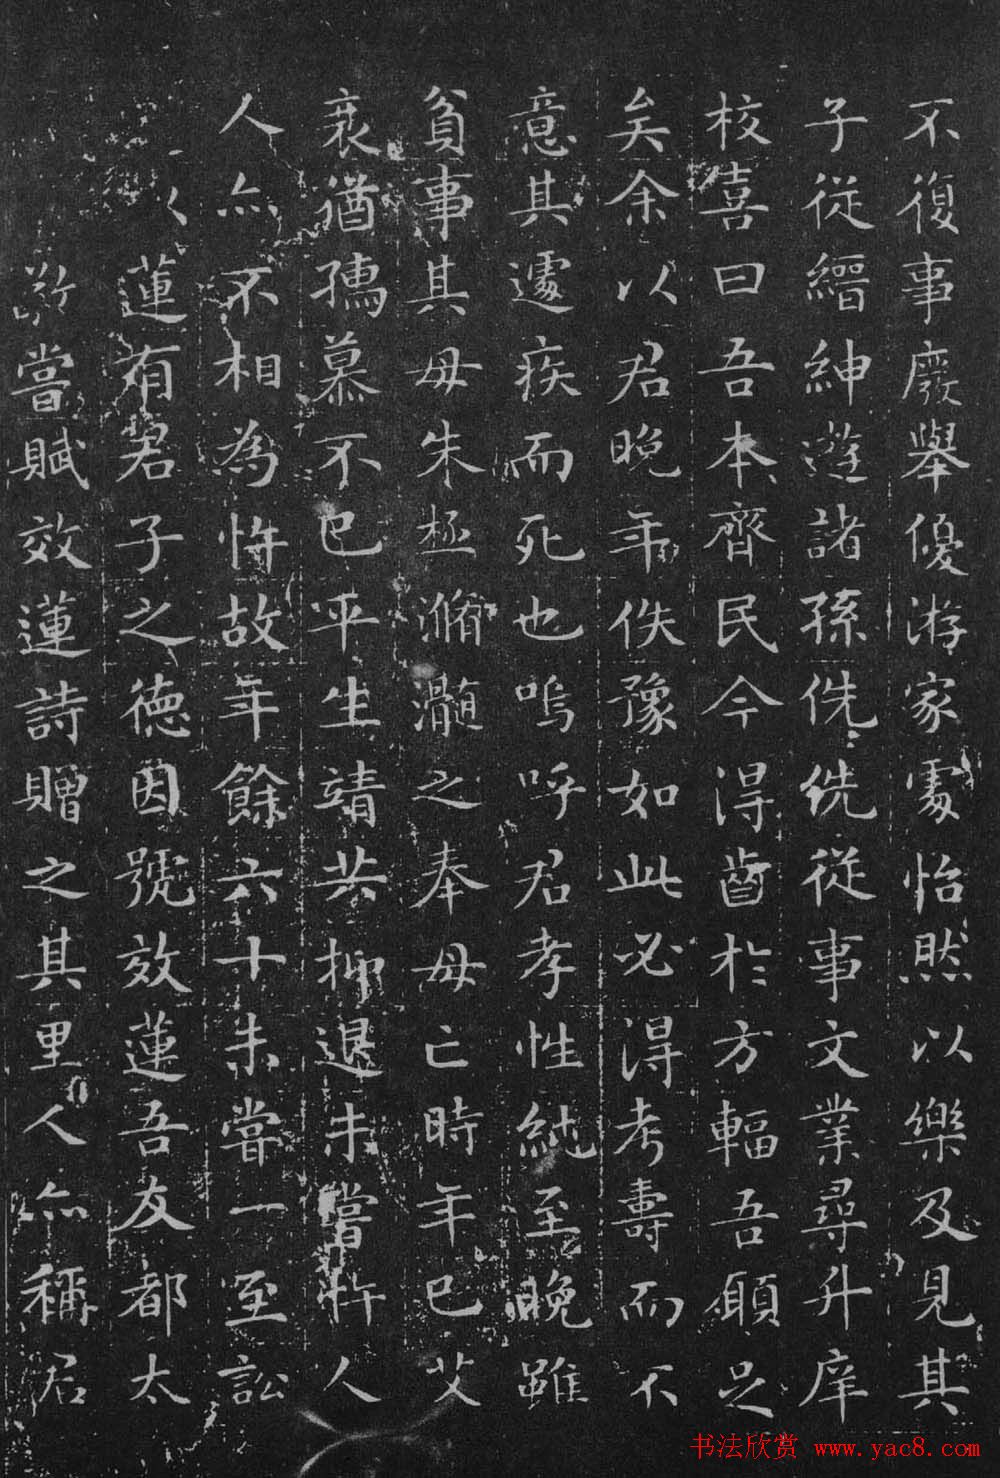 不復事廢舉優游家處怡然以樂及見其
子從縉紳遊諸孫侁侁從事文業尋升庠
校喜曰吾本齊民今得齒於方輻吾願足
矣余以君晚年佚豫如此必得考壽而不
意其遽疾而死也嗚呼君孝性純至晚雖
貧事其母朱極滫瀡之奉母亡時年已艾
衰猶孺慕不已平生靖共抑退未嘗忤人
人亦不相為忤故年餘六十未嘗一至訟
蓮有君子之德因號效蓮吾友都太
嘗賦效蓮詩贈之其里人亦稱君
书法欣赏 www.yac8.com